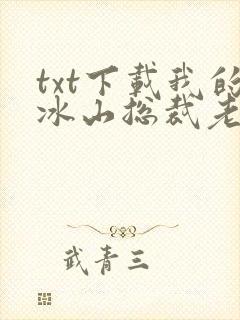 txt下载我的
冰山总裁老
武青三